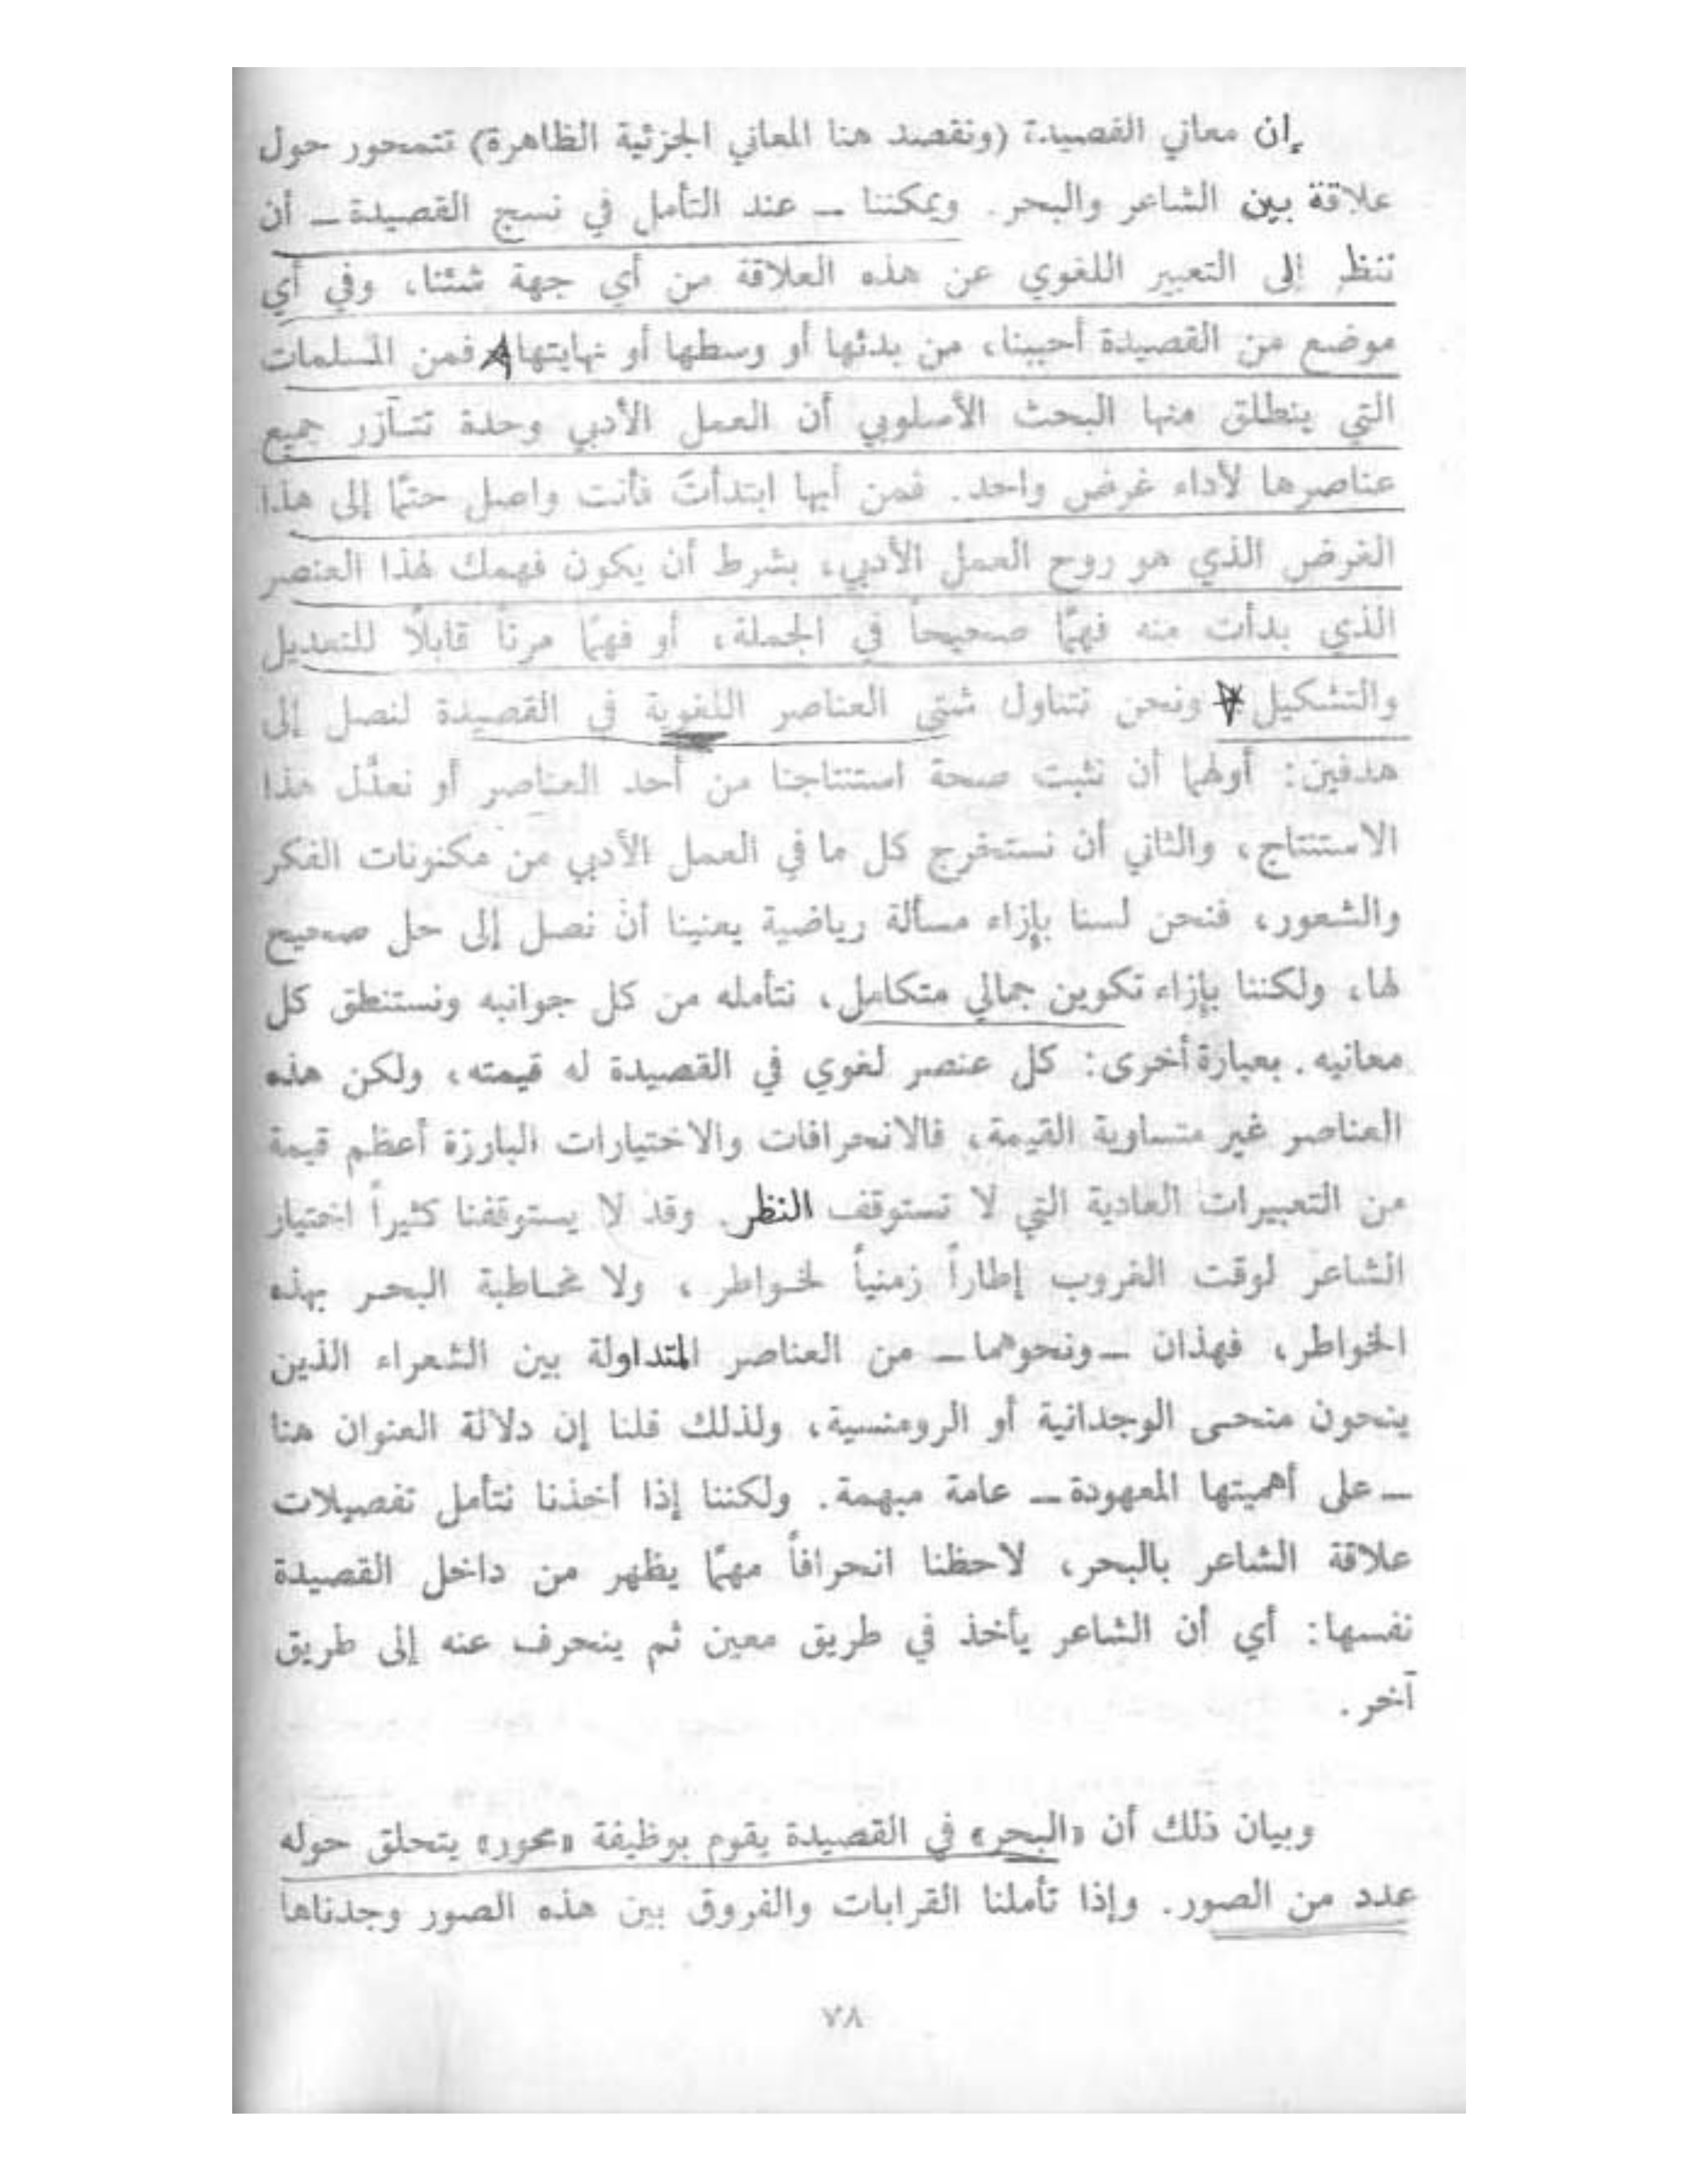 إن معاني القصيدة (ونقصد هنا المعاني الجزئية الظاهرة) تتمحور حول
علاقة بين الشاعر والبحر. ويمكننا ــ عند التأمل في نسج القصيدة ــ أن
ننظر إلى التعبير اللغوي عن هذه العلاقة من أي جهة شئنا، وفي أي
موضع من القصيدة أحببنا، من بدئها أو وسطها أو نهايتها فمن المسلمات
التي ينطلق منها البحث الأسلوبي أن العمل الأدبي وحدة تتآزر جميع
عناصرها لأداء غرض واحد. فمن أيها ابتدأتَ فأنت واصل حتمًا إلى هذا
الغرض الذي هو روح العمل الأدبي، بشرط أن يكون فهمك لهذا العنصر
الذي بدأت منه فهمًا صحيحاً في الجملة، أو فهمًا مرناً قابلاً للتعديل
والتشكيل ونحن نتناول شتى العناصر اللغوية في القصيدة لنصل إلى
هدفين: أولهما أن نثبت صحة استنتاجنا من أحد العناصر أو نعدِّل هذا
الاستنتاج، والثاني أن نستخرج كل ما في العمل الأدبي من مكنونات الفكر
والشعور، فنحن لسنا بإزاء مسألة رياضية يعنينا أن نصل إلى حل صحيح
لها، ولكننا بإزاء تكوين جمالي متكامل، نتأمله من كل جوانبه ونستنطق كل
معانيه. بعبارة أخرى: كل عنصر لغوي في القصيدة له قيمته، ولكن هذه
العناصر غير متساوية القيمة، فالانحرافات والاختيارات البارزة أعظم قيمة
من التعبيرات العادية التي لا تستوقف النظر. وقد لا يستوقفنا كثيراً اختيار
الشاعر لوقت الغروب إطاراً زمنياً لخواطر، ولا مخاطبة البحر بهذه
الخواطر، فهذان ــ ونحوهما ــ من العناصر المتداولة بين الشعراء الذين
ينحون منحى الوجدانية أو الرومنسية، ولذلك قلنا إن دلالة العنوان هنا
ــ على أهميتها المعهودة ــ عامة مبهمة. ولكننا إذا أخذنا نتأمل تفصيلات
علاقة الشاعر بالبحر، لاحظنا انحرافاً مهمًا يظهر من داخل القصيدة
نفسها: أي أن الشاعر يأخذ في طريق معين ثم ينحرف عنه إلى طريق
آخر.
وبيان ذلك أن «البحر» في القصيدة يقوم بوظيفة «محور» يتحلق حوله
عدد من الصور. وإذا تأملنا القرابات والفروق بين هذه الصور وجدناها
٧٨